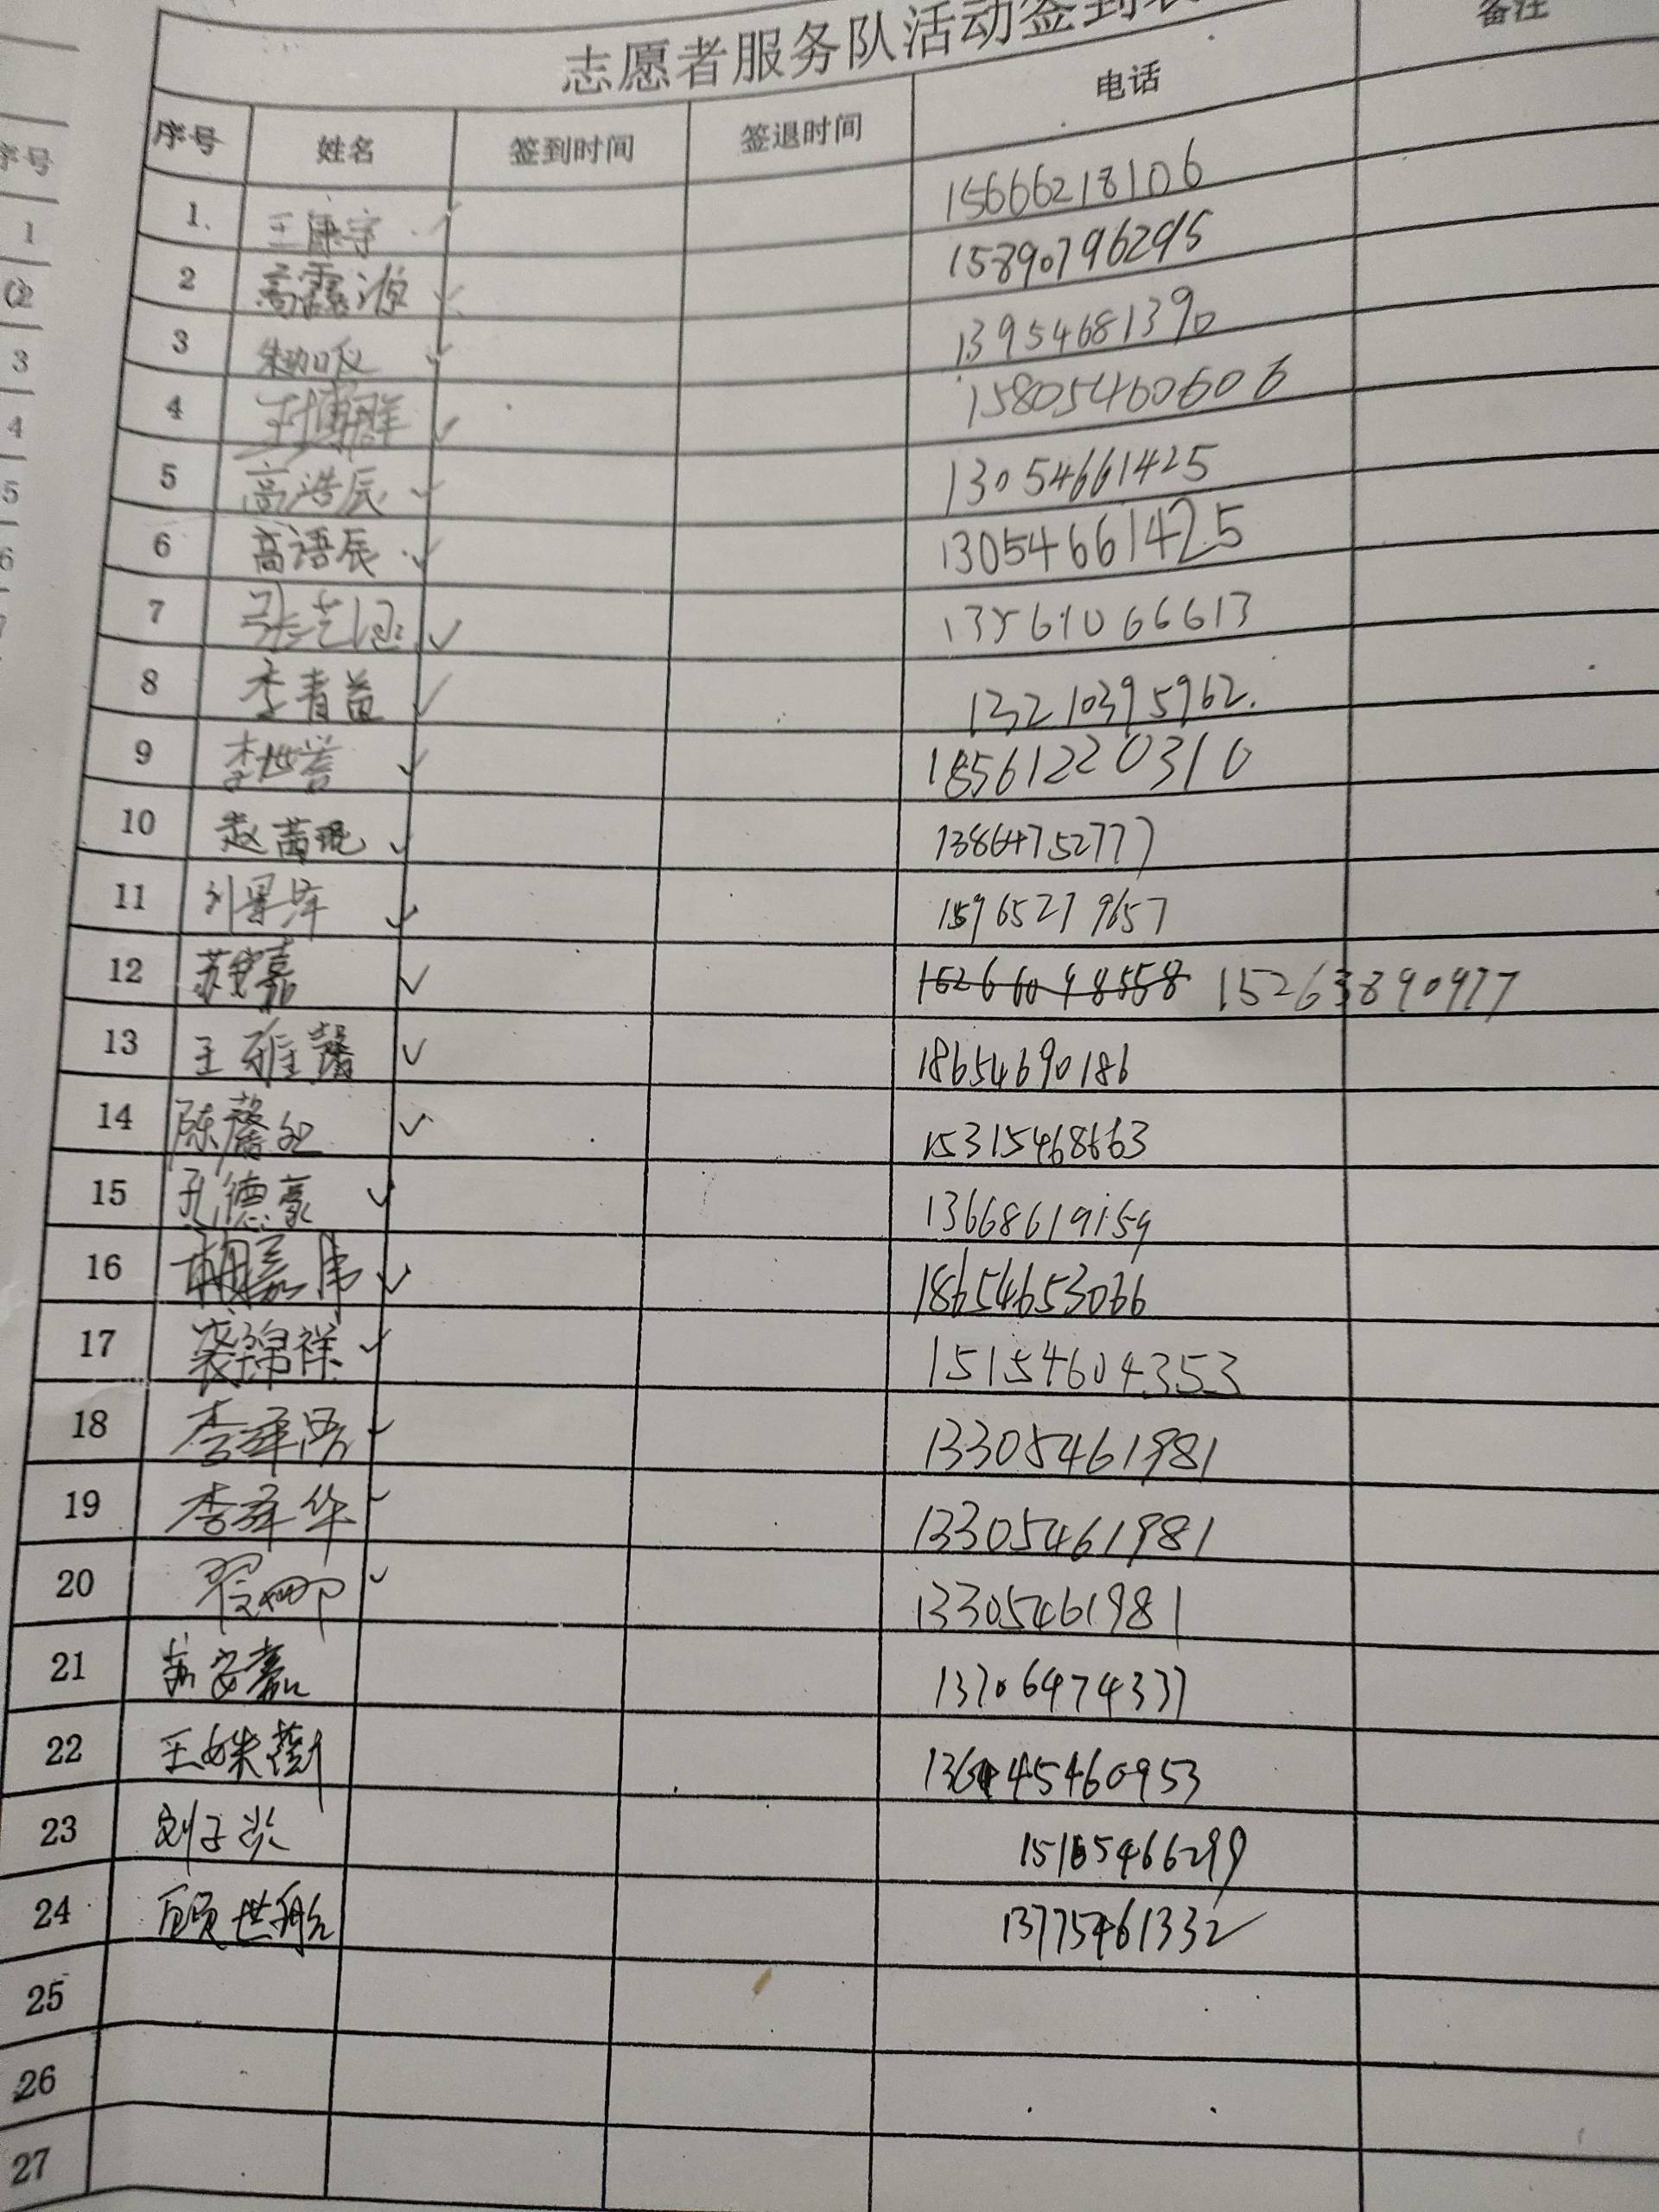 志愿者服务队活动签到表
序号 姓名 签到时间 签退时间 电话 备注
1. 王康宇 15666218106
2 高露源 15890796295
3 13954681390
4 15805460606
5 高浩辰 ✓ 13054661425
6 高语辰 ✓ 13054661425
7 ✓
8 李青益 ✓ 13210395962.
9 李世誉 ✓ 18561220310
10 赵茜琨 ✓ 13864752777
11 刘昱泽 ✓ 15965279657
12 苏安嘉 ✓ 15266098558 15263890977
13 王雅馨 ✓ 18654690186
14 陈馨 ✓ 15315468663
15 孔德豪 ✓ 13668619159
16 胡嘉伟 ✓ 18654653066
17 裴锦祥 ✓ 15154604353
18 李泽 ✓ 13305461981
19 李泽华 ✓ 13305461981
20 翟娜 ✓ 13305461981
21 13706474337
22 王姝蘅
23 刘子 15165466299
24 顾世航 13775461332
25
26
27
序号
1
2
3
4
5
6